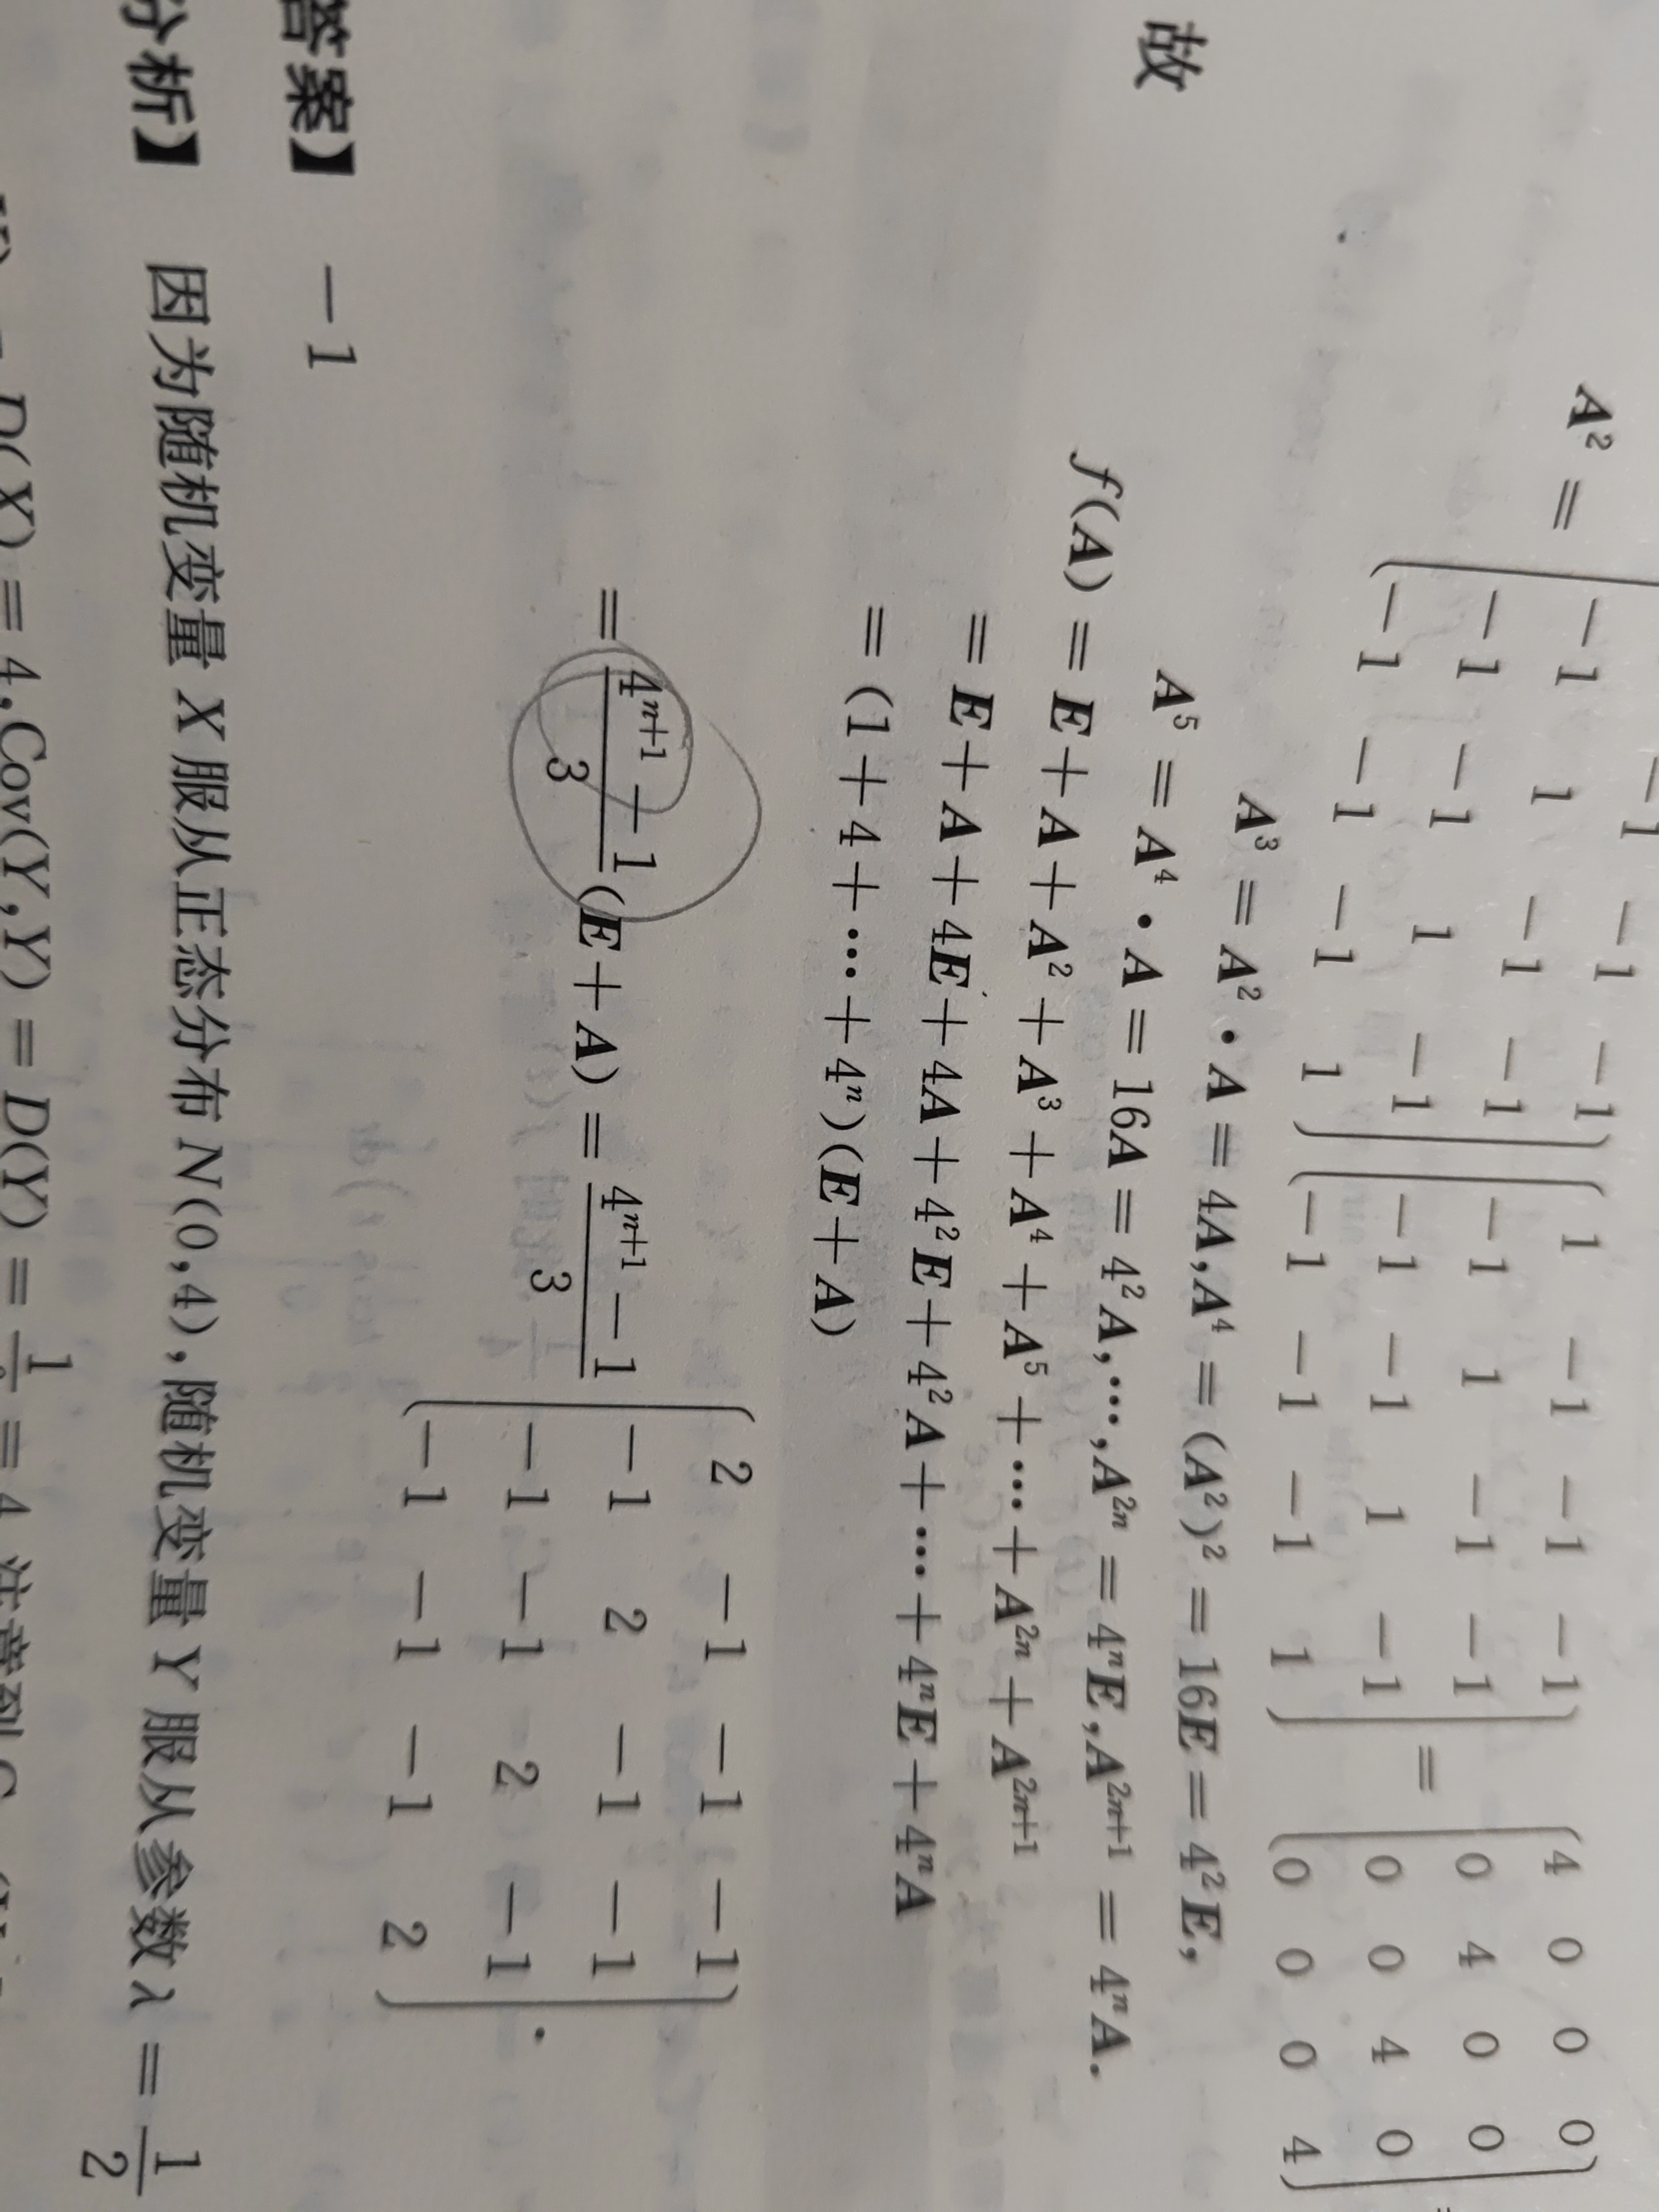 A² = ( -1 -1 -1
-1 1 -1 -1
-1 -1 1 -1
-1 -1 -1 1 ) ( 1 -1 -1 -1
-1 1 -1 -1
-1 -1 1 -1
-1 -1 -1 1 ) = ( 4 0 0 0
0 4 0 0
0 0 4 0
0 0 0 4 )
A³ = A² · A = 4A, A⁴ = (A²)² = 16E = 4²E,
A⁵ = A⁴ · A = 16A = 4²A, …, A²ⁿ = 4ⁿE, A²ⁿ⁺¹ = 4ⁿA.
故 f(A) = E + A + A² + A³ + A⁴ + A⁵ + … + A²ⁿ + A²ⁿ⁺¹
= E + A + 4E + 4A + 4²E + 4²A + … + 4ⁿE + 4ⁿA
= (1 + 4 + … + 4ⁿ)(E + A)
= (4ⁿ⁺¹ - 1)/3 (E + A) = (4ⁿ⁺¹ - 1)/3 ( 2 -1 -1 -1
-1 2 -1 -1
-1 -1 2 -1
-1 -1 -1 2 ).
答案】 -1
分析】 因为随机变量 X 服从正态分布 N(0,4), 随机变量 Y 服从参数 λ = 1/2
D(X) = 4, Cov(Y,Y) = D(Y) = 1 = 4